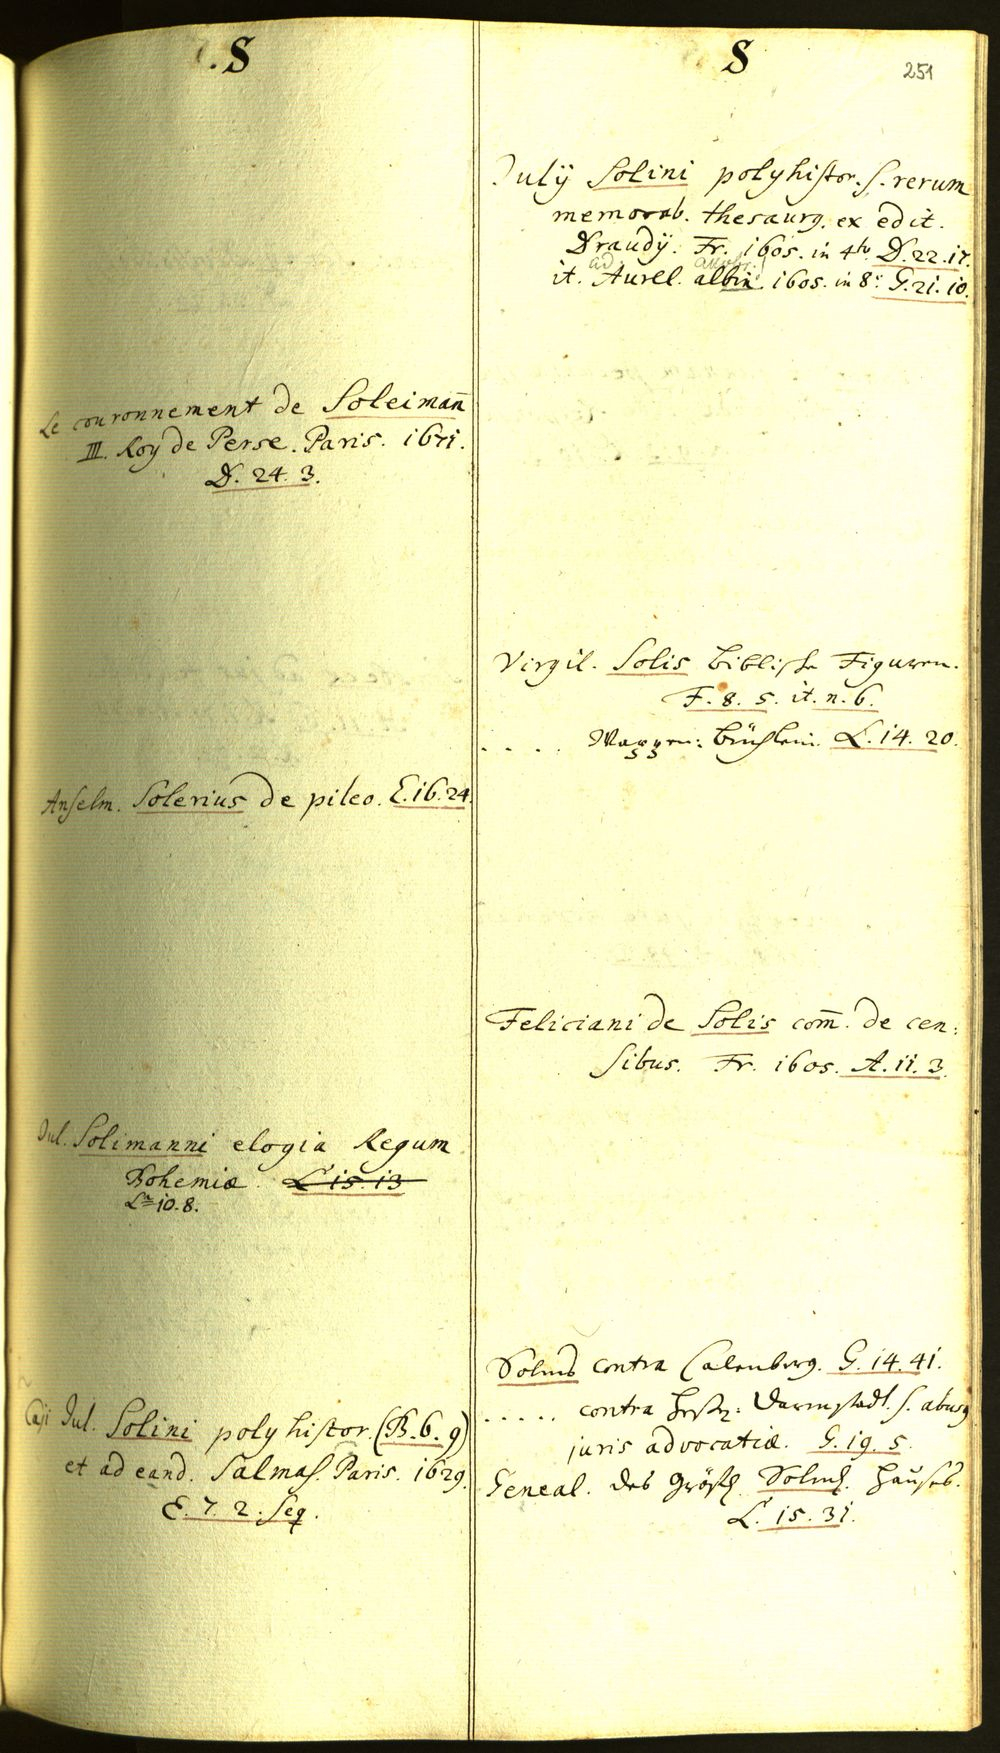 S
Le couronnement de Soleimañ
III. Roy de Perse. Paris. 1671.
D. 24. 3.
Anselm. Solerius de pileo. E. 16. 24.
Jul. Solimanni elogia Regum
Bohemiæ. L 15. 13
L. 10. 8.
Caji Jul. Solini polyhistor. (B. 6. 9)
et ad eand. Salmas. Paris. 1629.
E. 7. 2. seq.
S
251
Julij Solini polyhistor. s. rerum
memorab. thesaurg. ex edit.
Draudij. Fr. 1605. in 4to D. 22. 17.
ad.
it. Aurel. albin. 1605. in 8o G. 21. 10.
Virgil. Solis biblische Figuren.
F. 8. 5. it. n. 6.
. . . . Wappen: büchlein. L. 14. 20.
Feliciani de Solis com̄. de cen:
sibus. Fr. 1605. A. 11. 3.
Solms contra Calenberg. G. 14. 41.
. . . . . contra Darmstadt. s. abusg
juris advocatiæ. G. 19. 5.
Geneal. des Gräfl. Solms. Hauses.
L. 15. 31.